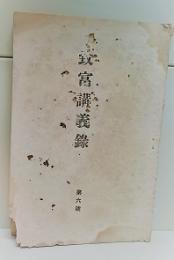 致富講義錄
第六號